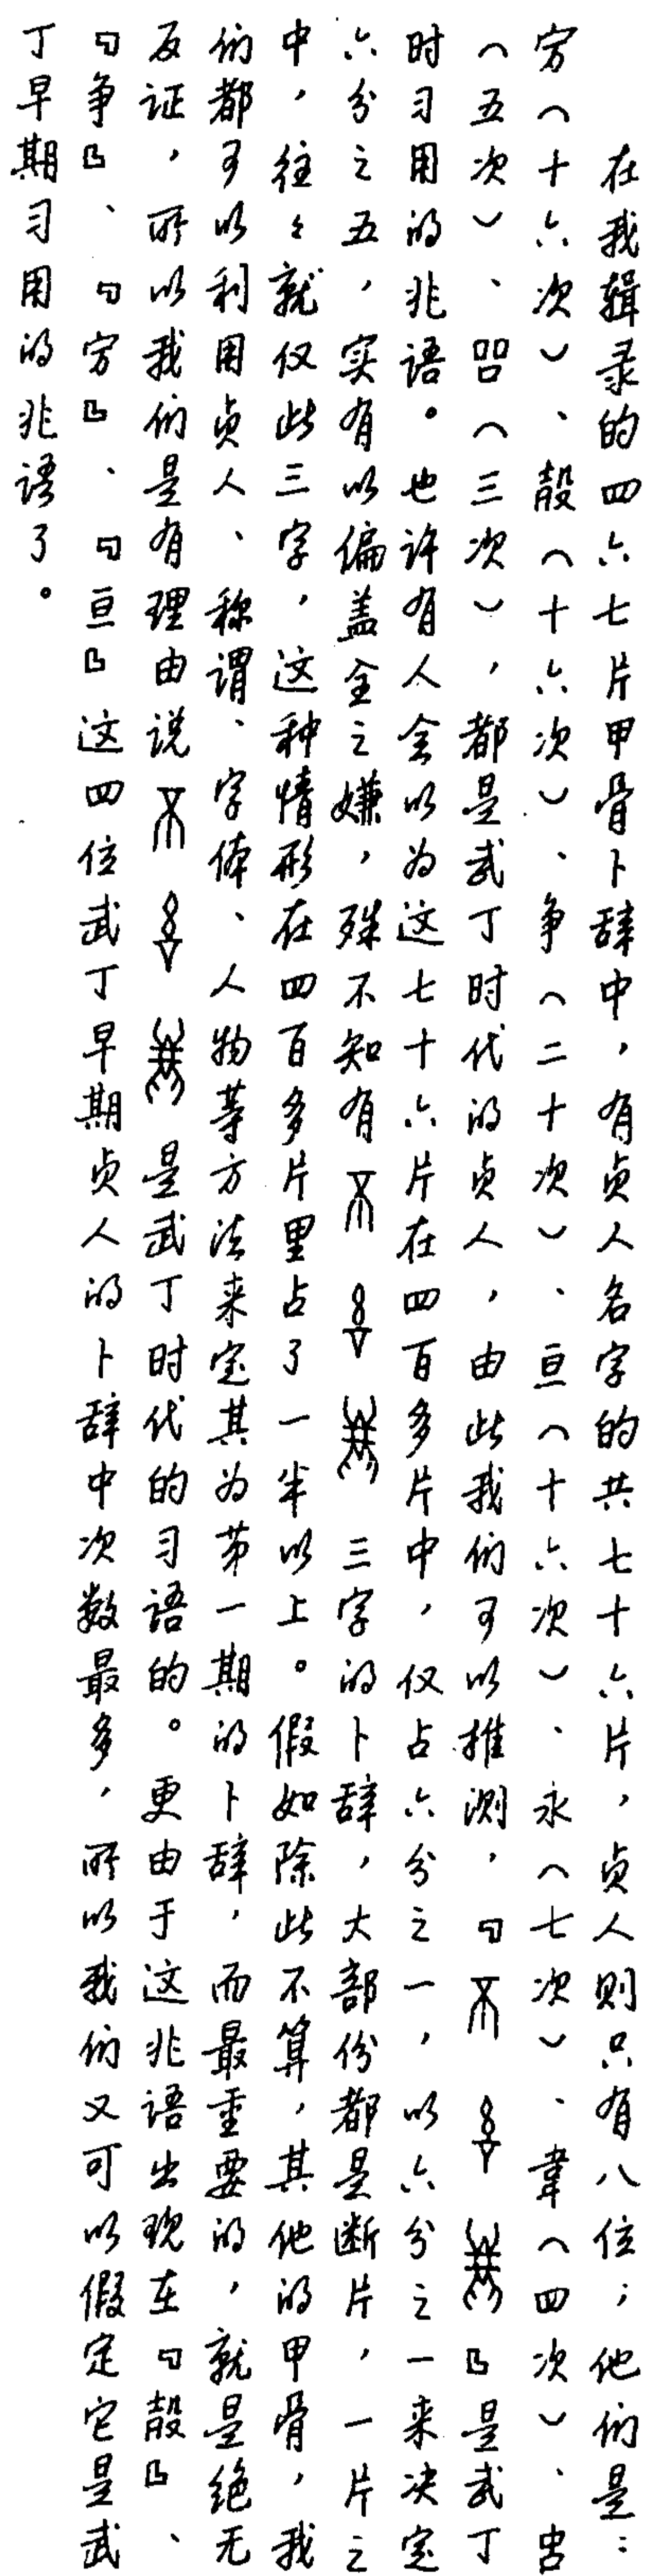 在我辑录的四六七片甲骨卜辞中，有贞人名字的共七十六片，贞人则只有八位；他们是：
㱿（十六次）、争（二十次）、亘（十六次）、永（七次）、韋（四次）、
（五次）、㗊（三次），都是武丁时代的贞人，由此我们可以推测，『』是武丁
时习用的兆语。也许有人会以为这七十六片在四百多片中，仅占六分之一，以六分之一来决定
六分之五，实有以偏盖全之嫌，殊不知有三字的卜辞，大部份都是断片，一片之
中，往々就仅此三字，这种情形在四百多片里占了一半以上。假如除此不算，其他的甲骨，我
们都可以利用贞人、称谓、字体、人物等方法来定其为第一期的卜辞，而最重要的，就是绝无
反证，所以我们是有理由说是武丁时代的习语的。更由于这兆语出现在『㱿』、
『争』、『㝑』、『亘』这四位武丁早期贞人的卜辞中次数最多，所以我们又可以假定它是武
丁早期习用的兆语了。